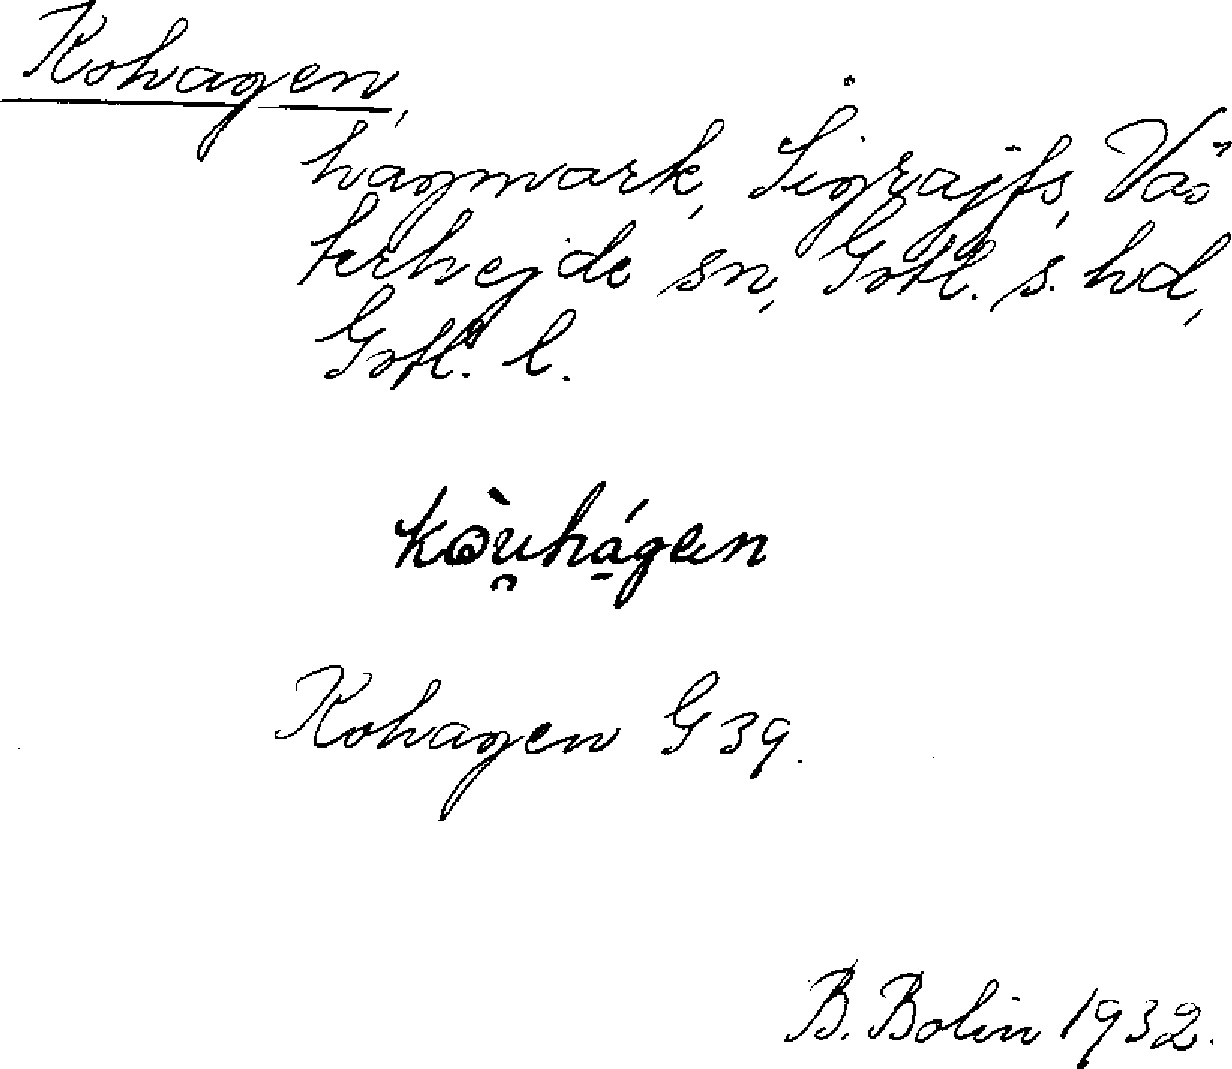 Kohagen,
hagmark, Sigrajfs, Väs
terhejde sn, Gotl. s. hd,
Gotl. l.
Kohagen G 39.
B. Bolin 1932.